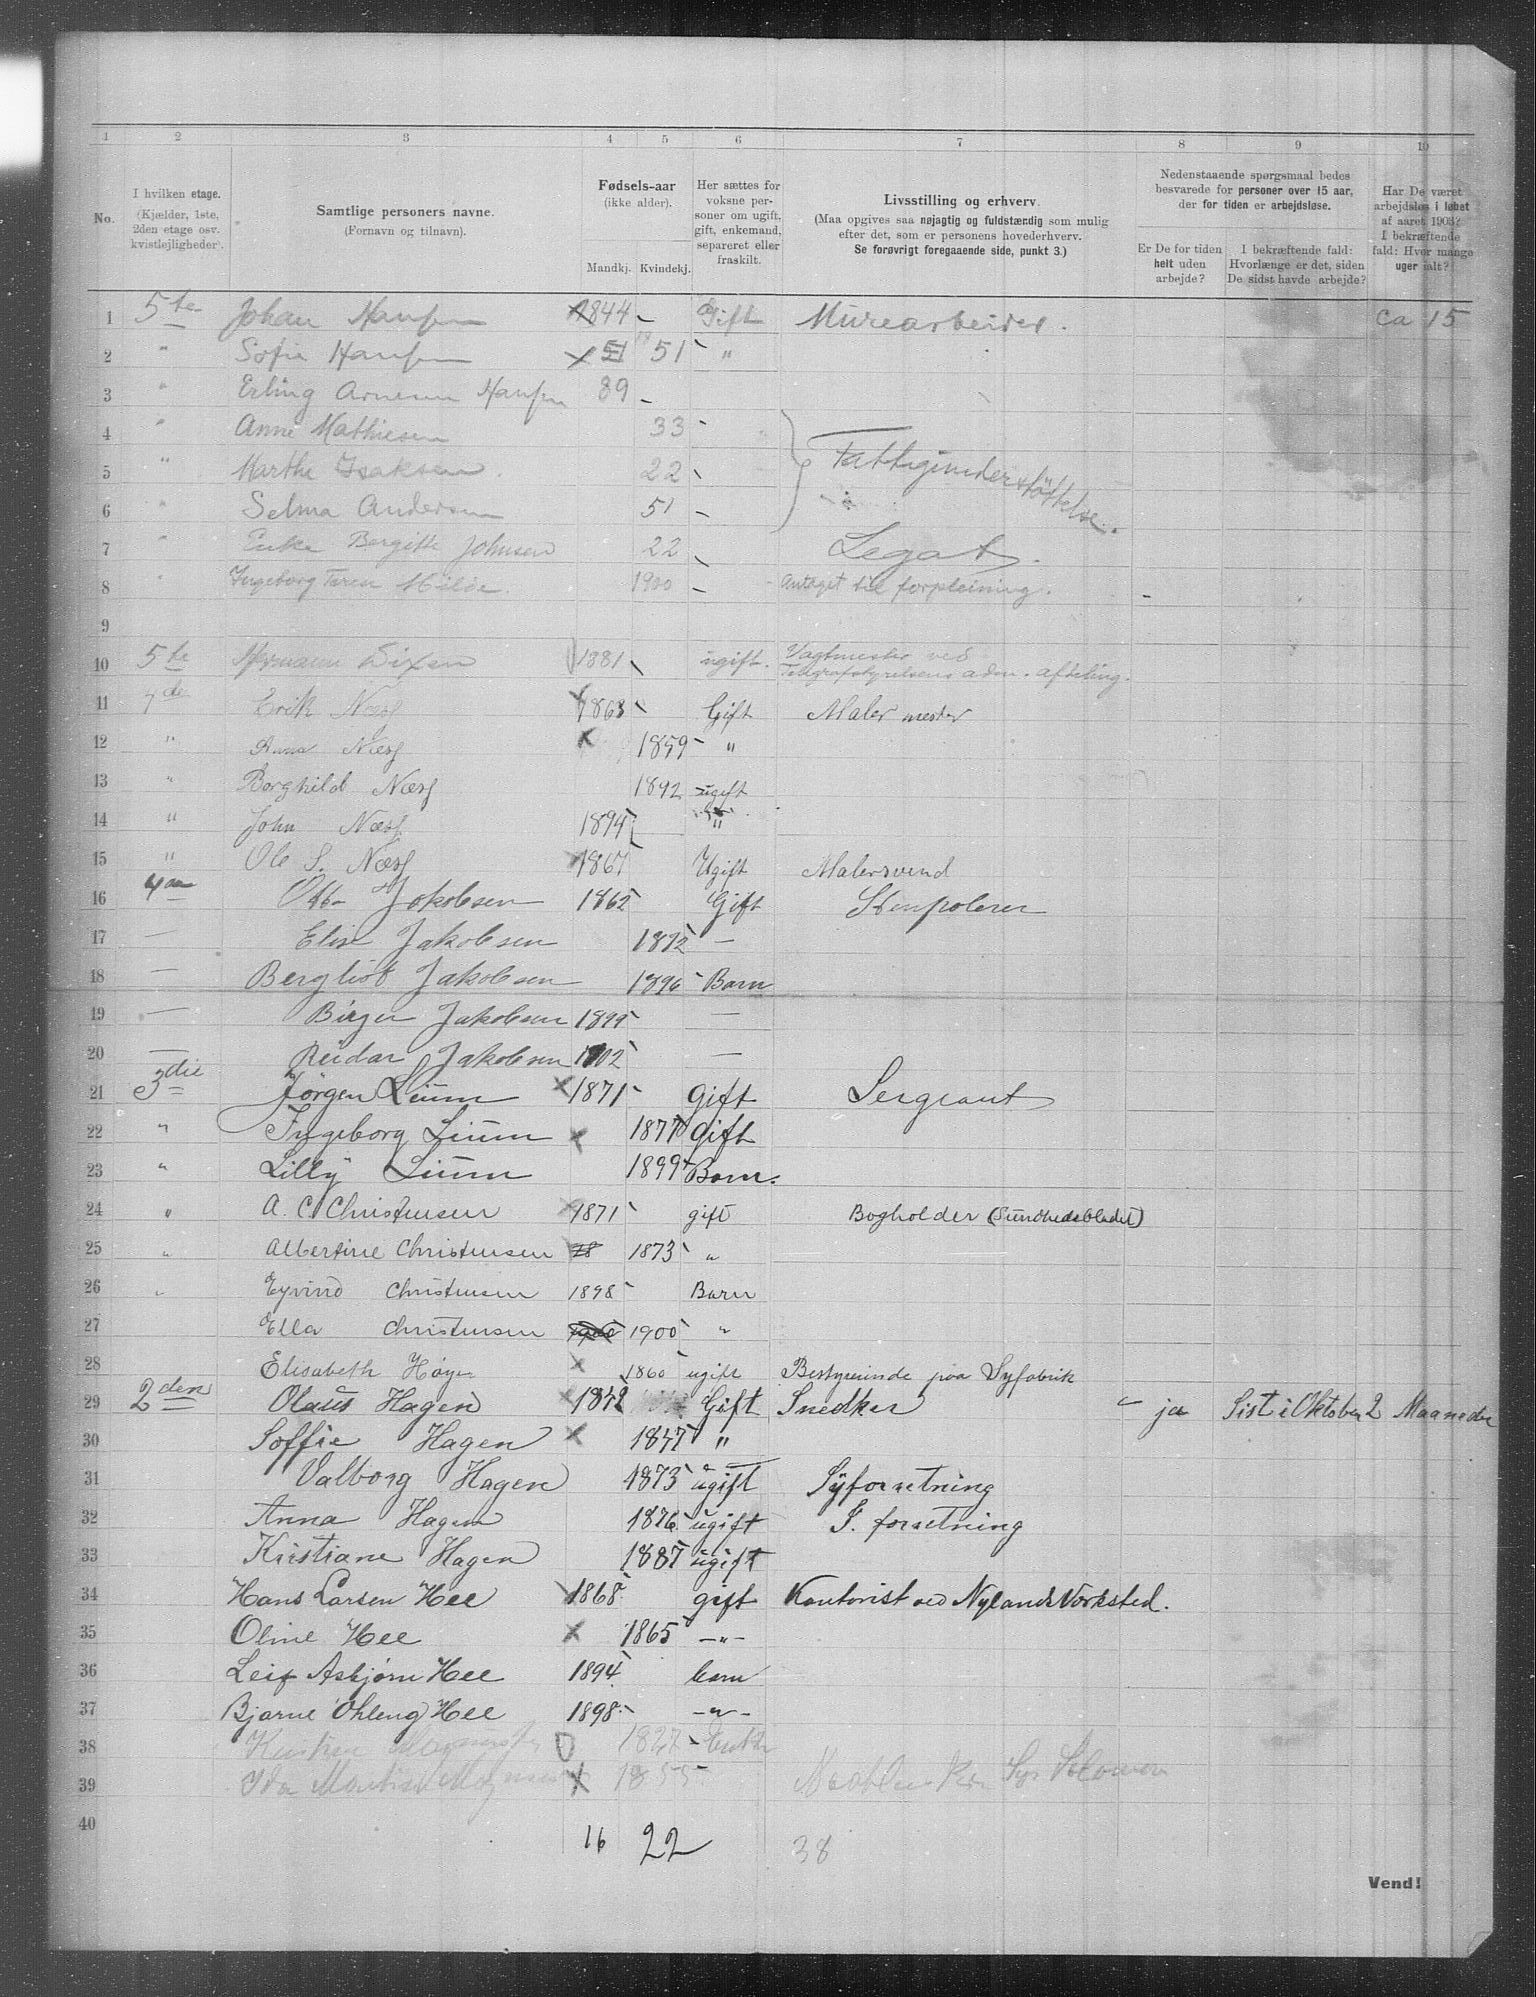 1 2 3 4 5 6 7 8 9 10
No.
I hvilken etage.
(Kjælder, 1ste,
2den etage osv.
kvistlejligheder).
Samtlige personers navne.
(Fornavn og tilnavn).
Fødsels-aar
(ikke alder).
Mandkj. Kvindekj.
Her sættes for
voksne per-
soner om ugift,
gift, enkemand,
separeret eller
fraskilt.
Livsstilling og erhverv.
(Maa opgives saa nøjagtig og fuldstændig som mulig
efter det, som er personens hovederhverv.
Se forøvrigt foregaaende side, punkt 3.)
Nedenstaaende spørgsmaal bedes
besvarede for personer over 15 aar,
der for tiden er arbejdsløse.
Er De for tiden
helt uden
arbejde?
I bekræftende fald:
Hvorlænge er det, siden
De sidst havde arbejde?
Har De været
arbejdsløs i løbet
af aaret 1903?
I bekræftende
fald: Hvor mange
uger ialt?
1 5te Johan Hansen 1844 Gift Murearbeider. ca 15
2 " Sofie Hansen 51 "
3 " Erling Hansen 89
4 " Anne Mathiesen 33
5 " Marthe Isaksen. 22 Fattigunderstøttelse.
6 " Selma Andersen 51
7 " Enke Bergitte Johnsen 22 Legat.
8 " Ingeborg Milde. 1900 antaget til forpleining.
9
10 5te Hermann Dixen 1881 ugift. Vagtmester ved
Telegrafstyrelsens adm. afdeling.
11 1de Erik Næss 1863 Gift Maler mester
12 " Anna Næss 1859 "
13 " Borghild Næss 1892 ugift
14 " John Næss 1894 "
15 " Ole S. Næss 1867 Ugift Malersvend
16 4de Otto Jakobsen 1862 Gift Stenpolerer
17 — Elise Jakobsen 1892 —
18 — Bergliot Jakobsen 1896 Barn
19 — Birger Jakobsen 1899 —
20 — Reidar Jakobsen 1902 —
21 3die Jørgen Lium 1871 Gift Sergeant
22 " Ingeborg Lium 1877 Gift
23 " Lilly Lium 1899 Barn.
24 " A. C. Christensen 1871 gift Bogholder (Sundhedsbladet)
25 " Albertine Christensen 1873 "
26 " Eyvind Christensen 1898 Barn
27 Ella Christensen 1900 1900 "
28 Elisabeth Høyer 1860 ugift Bestyrerinde paa Syfabrik
29 2den Olaus Hagen 1842 Gift Snedker " ja Sist i Oktober 2 Maaneder
30 Soffie Hagen 1847 "
31 Valborg Hagen 1873 ugift Syforretning
32 Anna Hagen 1876 ugift S. forretning
33 Kristiane Hagen 1887 ugift
34 Hans Larsen Hee 1868 gift Kontorist ved Nylands Værksted.
35 Oline Hee 1865 —"—
36 Leif Asbjørn Hee 1894 barn
37 Bjarne Øhleng Hee 1898 —"—
38 1827 Enke
39 Ida 1855
40
16 22 38
Vend!